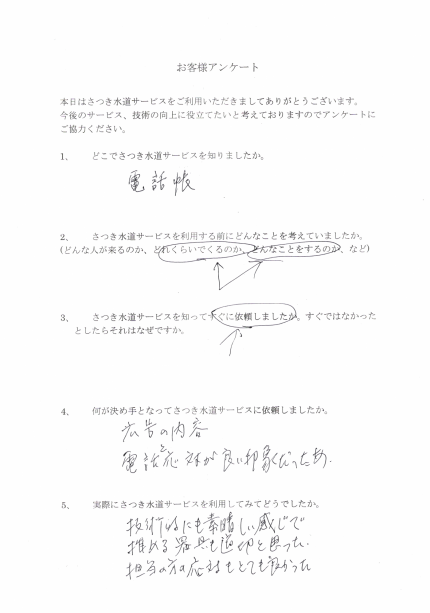 お客様アンケート
本日はさつき水道サービスをご利用いただきましてありがとうございます。
今後のサービス、技術の向上に役立てたいと考えておりますのでアンケートに
ご協力ください。
1、 どこでさつき水道サービスを知りましたか。
電話帳
2、 さつき水道サービスを利用する前にどんなことを考えていましたか。
(どんな人が来るのか、どれくらいでくるのか、どんなことをするのか、など)
3、 さつき水道サービスを知ってすぐに依頼しましたか。すぐではなかった
としたらそれはなぜですか。
4、 何が決め手となってさつき水道サービスに依頼しましたか。
広告の内容
電話応対が良い印象だった
5、 実際にさつき水道サービスを利用してみてどうでしたか。
技術的にも素晴しい感じで
推める器具も適切と思った.
担当の方の応対もとても良かった